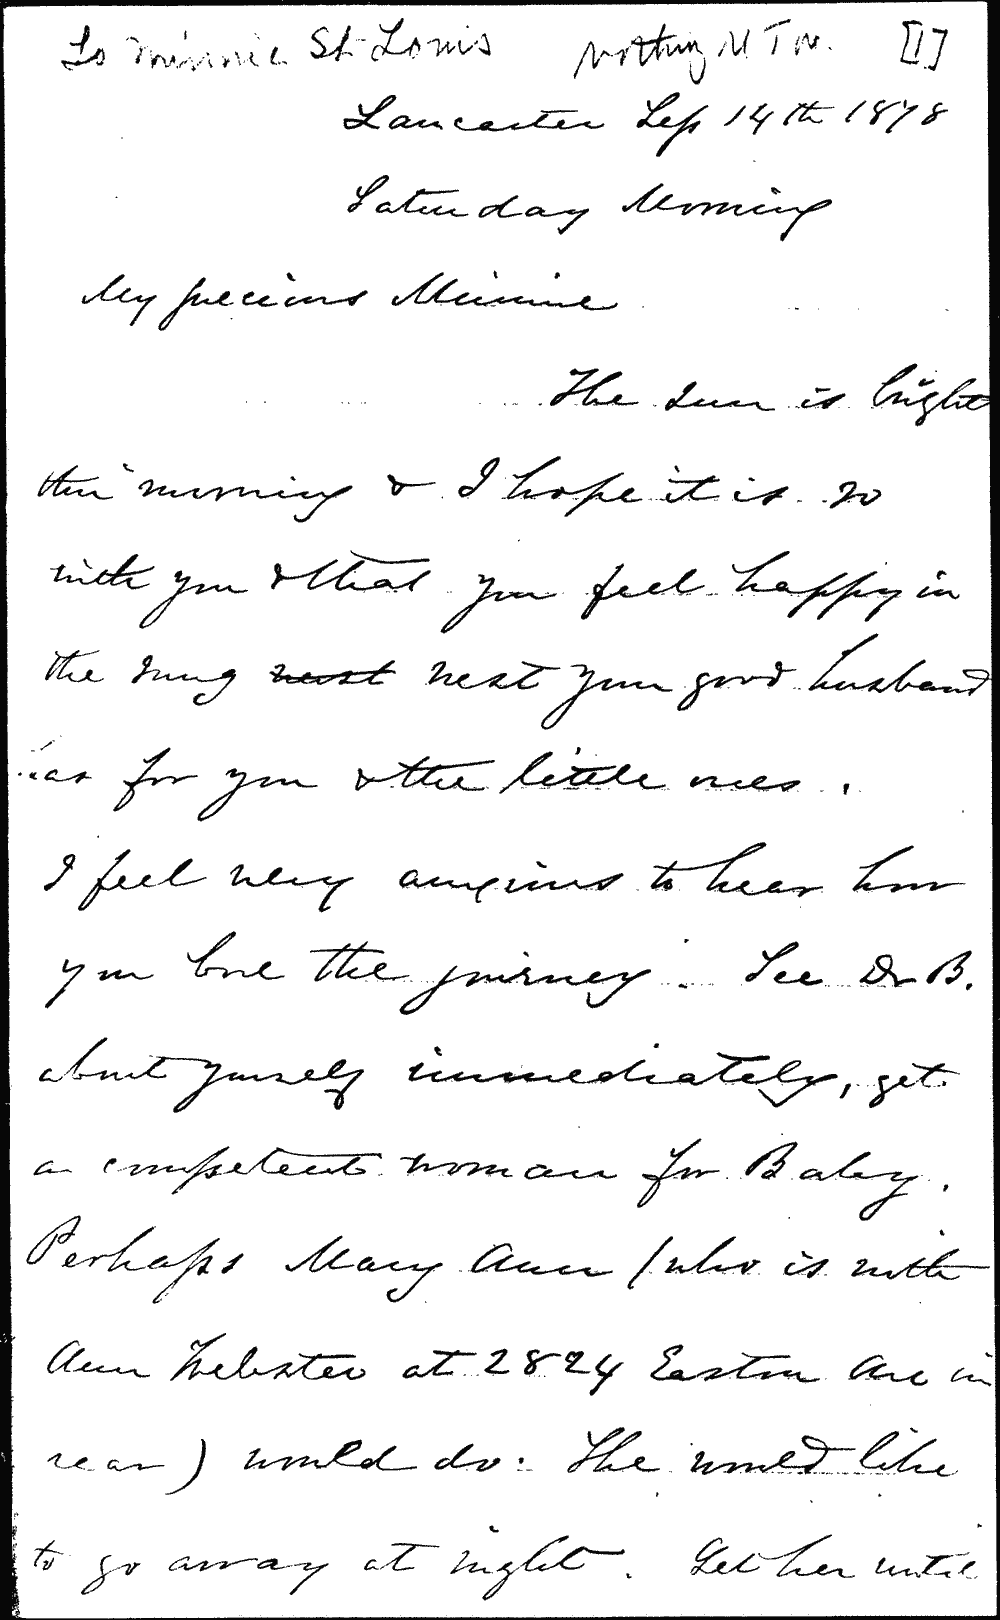 To Minnie St Louis nothing [1]
Lancaster Sep 14th 1878
Saturday Morning
My precious Minnie
The sun is bright
this morning & I hope it is so
with you & that you feel happy in
the snug nest nest your good husband
has for you & the little ones.
I feel very anxious to hear how
you bore the journey. See Dr B.
about yourself immediately, get
a competent woman for Baby.
Perhaps Mary Ann (who is with
Ann Webster at 2824 Easton Ave in
rear) would do. She would like
to go away at night. Get her until